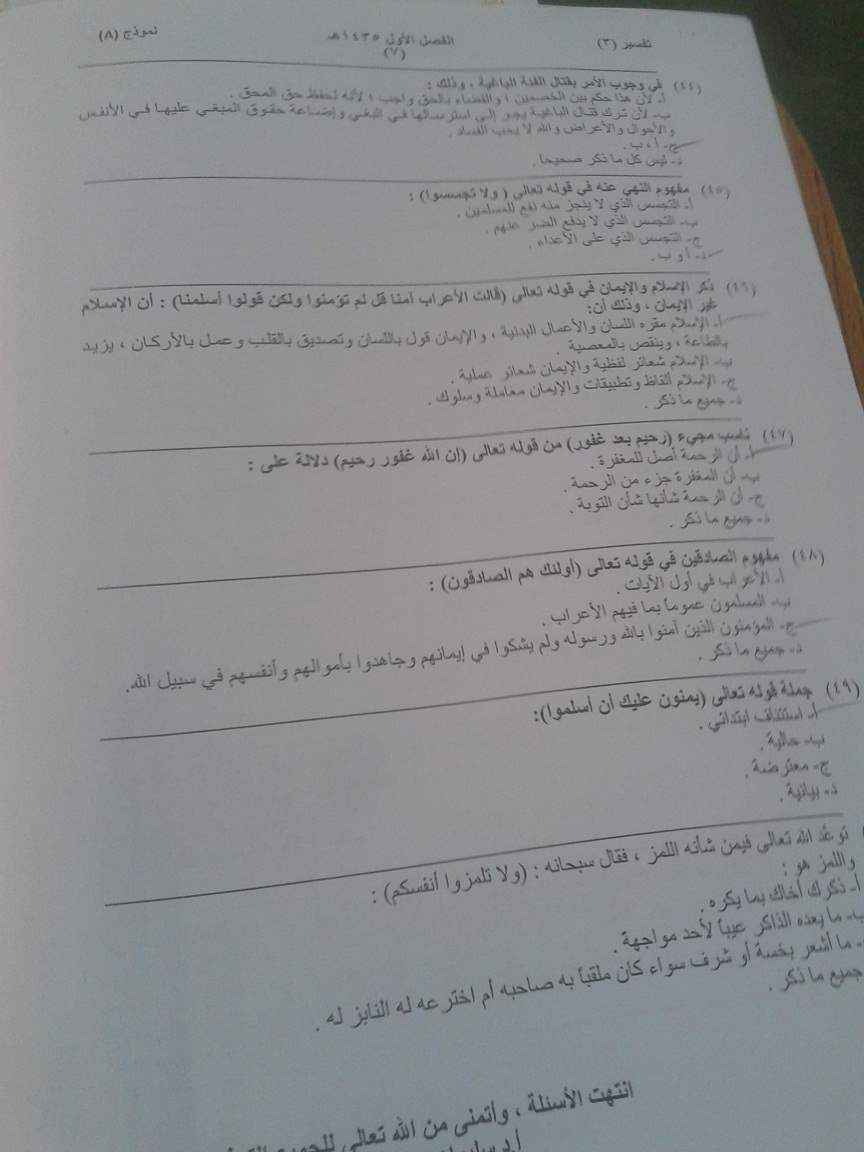 تفسير (٣) الفصل الأول ١٤٣٥هـ نموذج (٨)
(٧)
(٤٤) في وجوب الأمر بقتال الفئة الباغية ، وذلك :
أ- لأن هذا حكم بين الخصمين ، والقضاء بالحق واجب ؛ لأنه لحفظ حق المحق .
ب- لأن ترك قتال الباغية يجر إلى استرسالها في البغي وإضاعة حقوق المبغي عليها في الأنفس
والأحوال والأعراض والله لا يحب الفساد .
ج- أ ، ب .
د- ليس كل ما ذكر صحيحا .
(٤٥) مفهوم النهي عنه في قوله تعالى ( ولا تجسسوا) :
أ- التجسس الذي لا ينجز منه نفع للمسلمين .
ب- التجسس الذي لا يدفع الضر عنهم .
ج- التجسس الذي على الأعداء .
د- أ و ب .
(٤٦) ذكر الإسلام والإيمان في قوله تعالى (قالت الأعراب آمنا قل لم تؤمنوا ولكن قولوا أسلمنا) : أن الإسلام
غير الإيمان ، وذلك أن:
أ- الإسلام مقره اللسان والأعمال البدنية ، والإيمان قول باللسان وتصديق بالقلب وعمل بالأركان ، يزيد
بالطاعة ، وينقص بالمعصية .
ب- الإسلام شعائر لفظية والإيمان شعائر عملية .
ج- الإسلام ألفاظ وتطبيقات والإيمان معاملة وسلوك .
د- جميع ما ذكر .
(٤٧) ناسب مجيء (رحيم بعد غفور) من قوله تعالى (إن الله غفور رحيم) دلالة على :
أ- أن الرحمة أصل للمغفرة .
ب- أن المغفرة جزء من الرحمة .
ج- أن الرحمة شأنها شأن التوبة .
د- جميع ما ذكر .
(٤٨) مفهوم الصادقين في قوله تعالى (أولئك هم الصادقون) :
أ- الأعراب في أول الآيات .
ب- المسلمون عموماً بما فيهم الأعراب .
ج- المؤمنون الذين آمنوا بالله ورسوله ولم يشكوا في إيمانهم وجاهدوا بأموالهم وأنفسهم في سبيل الله.
د- جميع ما ذكر .
(٤٩) جملة قوله تعالى (يمنون عليك أن أسلموا):
أ- استئناف ابتدائي .
ب- حالية .
ج- معترضة .
د- بيانية .
توعَّد الله تعالى فيمن شأنه اللمز ، فقال سبحانه : (ولا تلمزوا أنفسكم) :
واللمز هو :
أ- ذكرك أخاك بما يكره .
ب- ما يعده الذاكر عيباً لأحد مواجهة .
- ما أشعر بخسة أو شرف سواء كان ملقباً به صاحبه أم اخترعه له النابز له .
جميع ما ذكر .
انتهت الأسئلة ، وأتمنى من الله تعالى للجميع